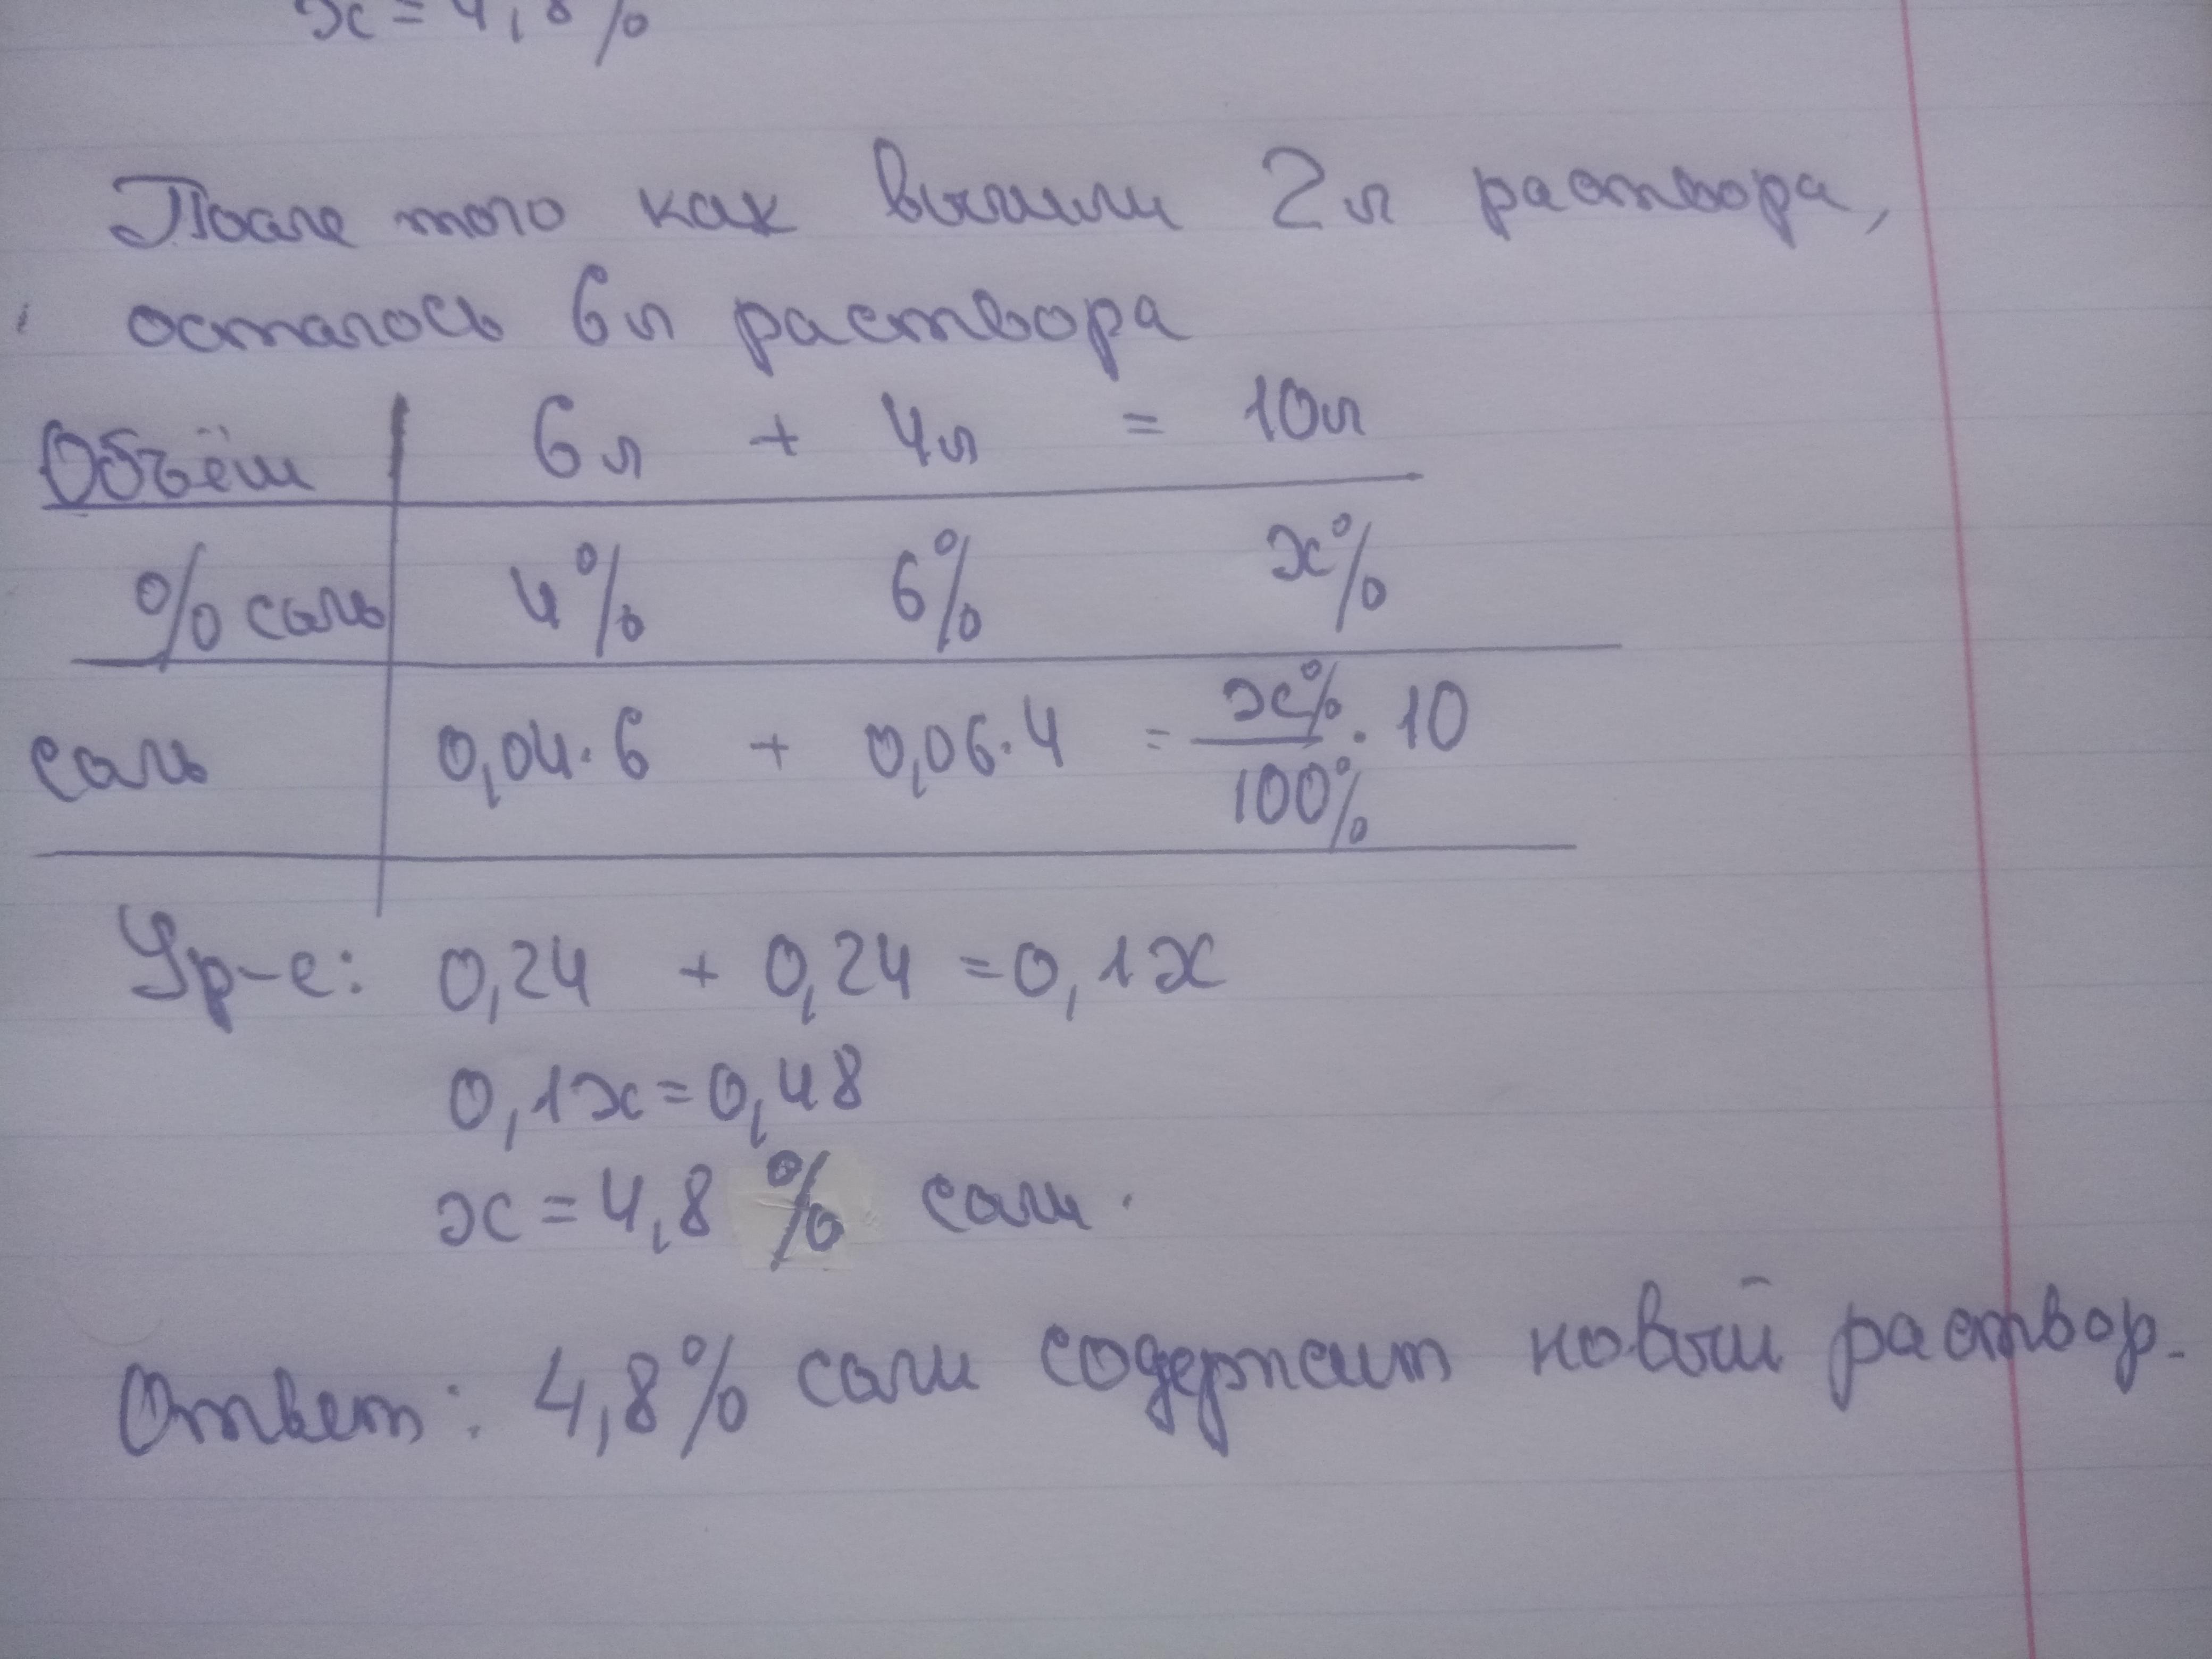 x = 4,8%
После того как вылили 2л раствора,
осталось 6л раствора
Объём 6л + 4л = 10л
% соль 4% 6% x%
соль 0,04·6 + 0,06·4 = x%/100% · 10
Ур-е: 0,24 + 0,24 = 0,1x
0,1x = 0,48
x = 4,8 % соли.
Ответ: 4,8% соли содержит новый раствор.